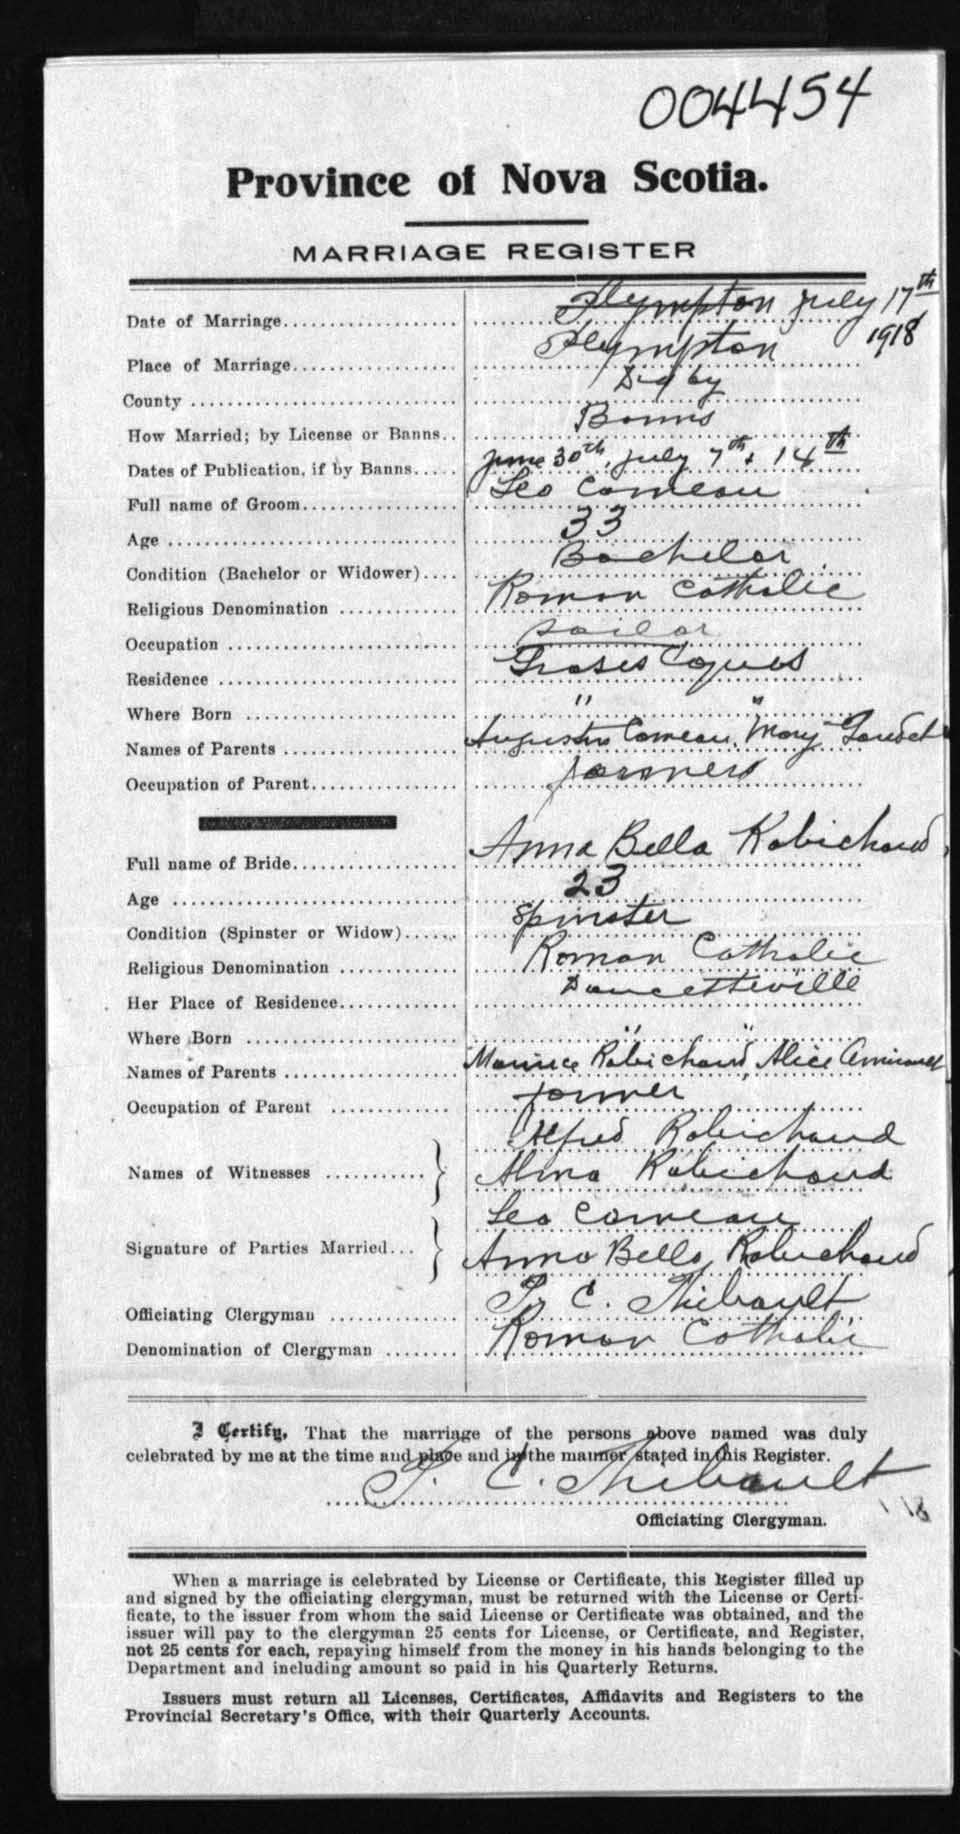 004454
Province of Nova Scotia.
MARRIAGE REGISTER
Date of Marriage Plympton July 17th 1918
Place of Marriage Plympton
County Digby
How Married; by License or Banns Banns
Dates of Publication, if by Banns June 30th, July 7th & 14th
Full name of Groom Leo Comeau
Age 33
Condition (Bachelor or Widower) Bachelor
Religious Denomination Roman Catholic
Occupation sailor
Residence Grosses Coques
Where Born " "
Names of Parents Augustin Comeau, Mary Gaudet
Occupation of Parent farmers
Full name of Bride Anna Bella Robichaud
Age 23
Condition (Spinster or Widow) Spinster
Religious Denomination Roman Catholic
Her Place of Residence Doucetteville
Where Born " "
Names of Parents Maurice Robichaud, Alice Amirault
Occupation of Parent farmer
Names of Witnesses } Alfred Robichaud
Alma Robichaud
Signature of Parties Married... } Leo Comeau
Anna Bella Robichaud
Officiating Clergyman C. Thibault
Denomination of Clergyman Roman Catholic
I Certify, That the marriage of the persons above named was duly
celebrated by me at the time and place and in the manner stated in this Register.
C. Thibault
Officiating Clergyman.
When a marriage is celebrated by License or Certificate, this Register filled up
and signed by the officiating clergyman, must be returned with the License or Certi-
ficate, to the issuer from whom the said License or Certificate was obtained, and the
issuer will pay to the clergyman 25 cents for License, or Certificate, and Register,
not 25 cents for each, repaying himself from the money in his hands belonging to the
Department and including amount so paid in his Quarterly Returns.
Issuers must return all Licenses, Certificates, Affidavits and Registers to the
Provincial Secretary's Office, with their Quarterly Accounts.